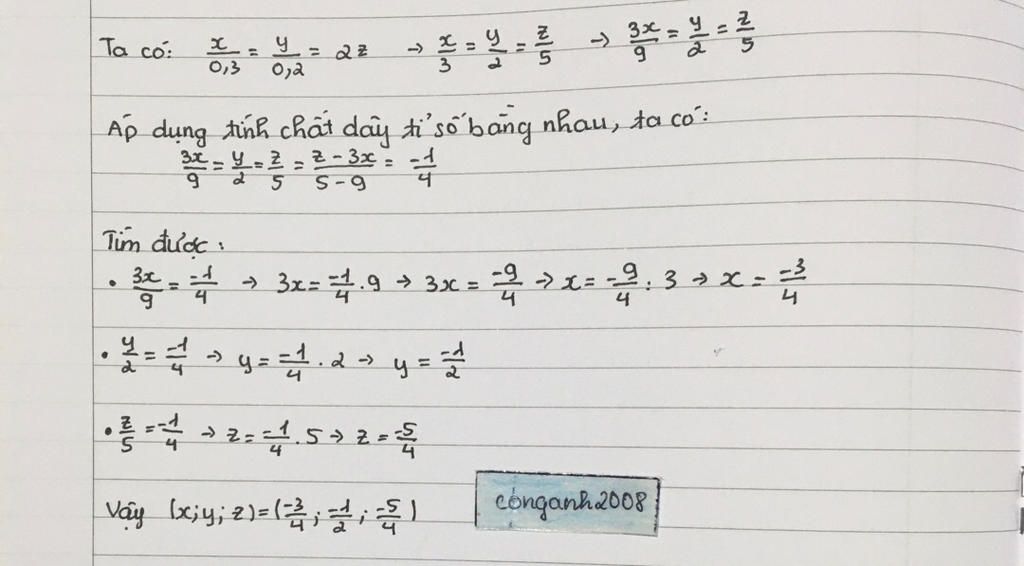 Ta có: x/0,3 = y/0,2 = 2z → x/3 = y/2 = z/5 → 3x/9 = y/2 = z/5
Áp dụng tính chất dãy tỉ số bằng nhau, ta có:
3x/9 = y/2 = z/5 = z - 3x/5 - 9 = -1/4
Tìm được:
• 3x/9 = -1/4 → 3x = -1/4 . 9 → 3x = -9/4 → x = -9/4 : 3 → x = -3/4
• y/2 = -1/4 → y = -1/4 . 2 → y = -1/2
• z/5 = -1/4 → z = -1/4 . 5 → z = -5/4
Vậy (x; y; z) = (-3/4; -1/2; -5/4)
cónganh2008